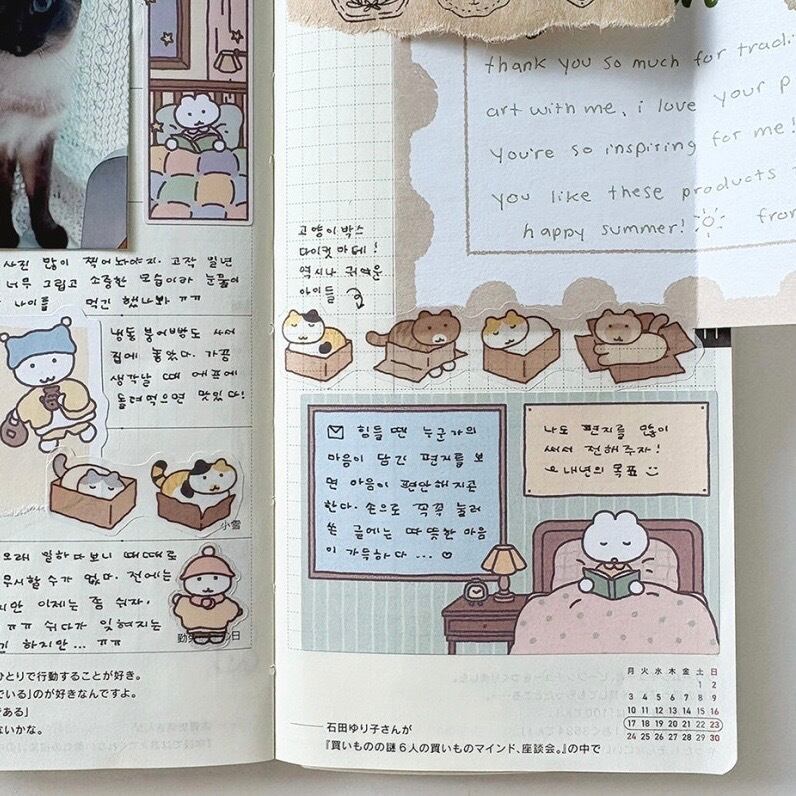 사진 많이 찍어놔야지. 고작 일년
너무 그립고 소중한 모습이라 눈물이
나이를 먹긴 했나봐 ㅠㅠ
냉동 붕어빵도 사서
집에 놓았다. 가끔
생각날 때 에프에
돌려먹으면 맛있다!
小雪
오래 일하다보니 때때로
무시할 수가 없다. 전에는
지만 이제는 좀 쉬자.
ㅠㅠ 쉬다가 잊혀지는
하지만... ㅠㅠ
勤 日
ひとりで行動することが好き。
でいる」のが好きなんですよ。
である」
ないかな。
thank you so much for tradi
art with me, i love your p
you're so inspiring for me!
you like these products
happy summer! from
고양이박스
다이컷 마테!
역시나 귀여운
아이들
힘들 땐 누군가의
마음이 담긴 편지를 보
면 마음이 편안해지곤
한다. 손으로 꼭꼭 눌러
쓴 글에는 따뜻한 마음
이 가득하다... ♡
나도 편지를 많이
써서 전해주자!
내년의 목표
月 火 水 木 金 土 日
1 2
3 4 5 6 7 8 9
10 11 12 13 14 15 16
17 18 19 20 21 22 23
24 25 26 27 28 29 30
石田ゆり子さんが
『買いものの謎 6人の買いものマインド、座談会。』の中で